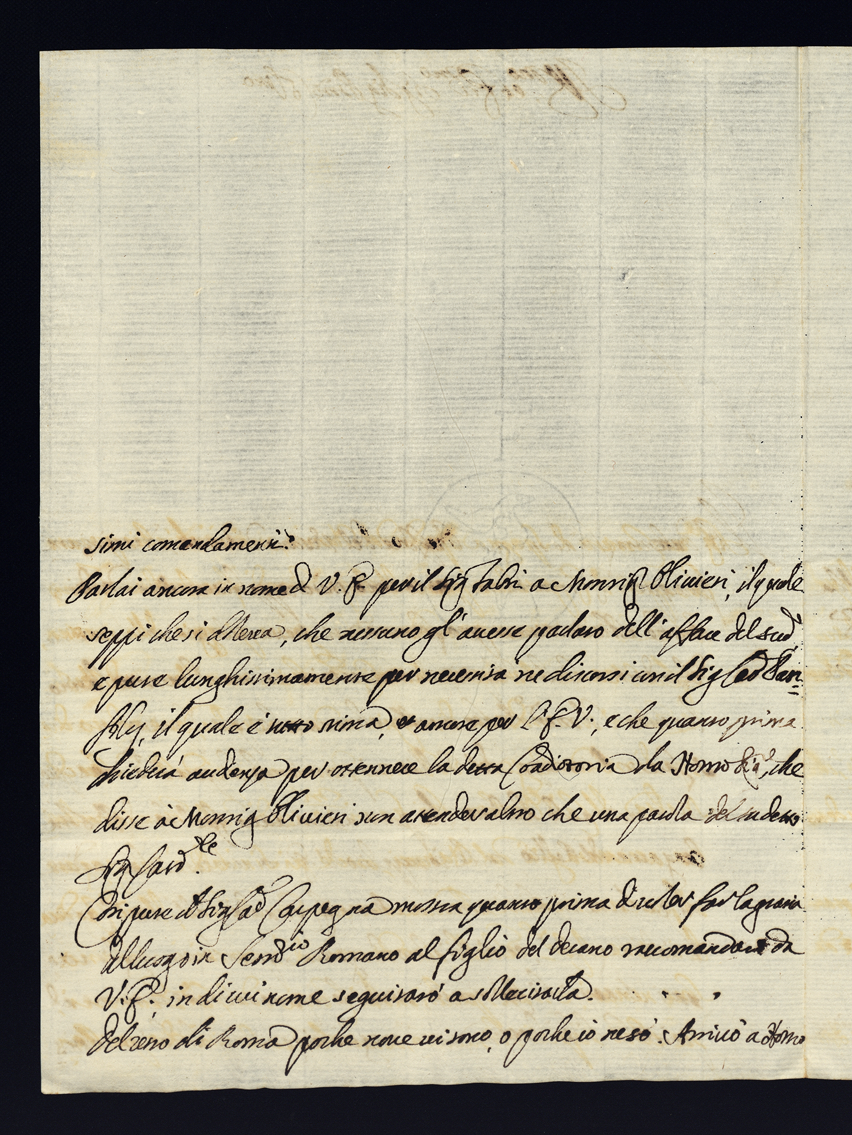 simi comandamenti.
Parlai ancora in nome di V. E. per il Sig Fabri a Monsig Olivieri, il quale
seppi che si doleva, che nessuno gl'avesse parlato dell'affare del sud.
e pure lunghissimamente per necessità ne discorsi con il Sig Card Pan
fily, il quale è tutto stima, et amore per l'E. V., e che quanto prima
chiederà audienza per ottennere la detta Coadiutoria da Nostro Sig.re, che
disse à Monsig Olivieri non attender altro che una parola del sudetto
Sig Card.le
Con pure il Sig Card Carpegna mostra quanto prima di voler far la gratia
al luogo in Sem.rio Romano al figlio del decano raccomandato da
V. E., in di cui nome seguitarò a sollecitarla.
Del resto di Roma poche nove vi sono, o poche io ne sò. Arrivò a Nostro